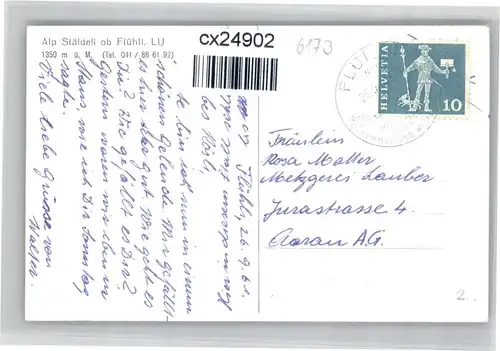 Alp Ställdeli ob Flühli, LU
1350 m ü. M. (Tel. 041 / 86 61 92)
cx24902
6173
FLÜ
HELVETIA
10
Flühli, 26.9.61.
Rösli,
bin ich nun in einem
schönen Gelände. Mir gefällt
es hier sehr gut. Wie geht es
Dir? Wie gefällt es Dir?
Gestern waren wir
Haus, wie ich Dir Sonntag
sagte.
Viele liebe Grüsse von
Walter.
Fräulein
Rosa Matter
Metzgerei Lauber
Jurastrasse 4
Aarau A.G.
2.-